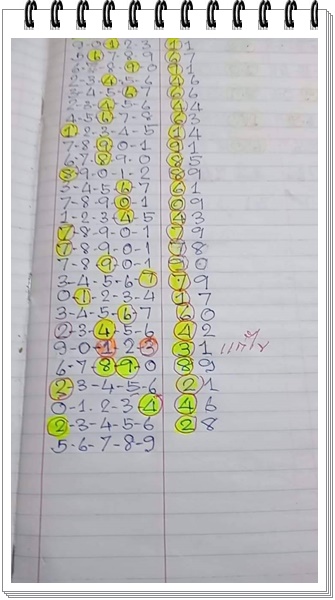 9-0-1-2-3 11
5-6-7-8-9 67
2-3-4-5-6
3-4-5-6-7 66
2-3-4-5-6 44
4-5-6-7-8 63
1-2-3-4-5 14
7-8-9-0-1 91
6-7-8-9-0 85
8-9-0-1-2 89
3-4-5-6-7 61
7-8-9-0-1 09
1-2-3-4-5 43
7-8-9-0-1 79
7-8-9-0-1 78
7-8-9-0-1 90
3-4-5-6-7 79
0-1-2-3-4 17
3-4-5-6-7 60
2-3-4-5-6 42
9-0-1-2-3 31
6-7-8-9-0 89
2-3-4-5-6 21
0-1-2-3-4 46
2-3-4-5-6 28
5-6-7-8-9